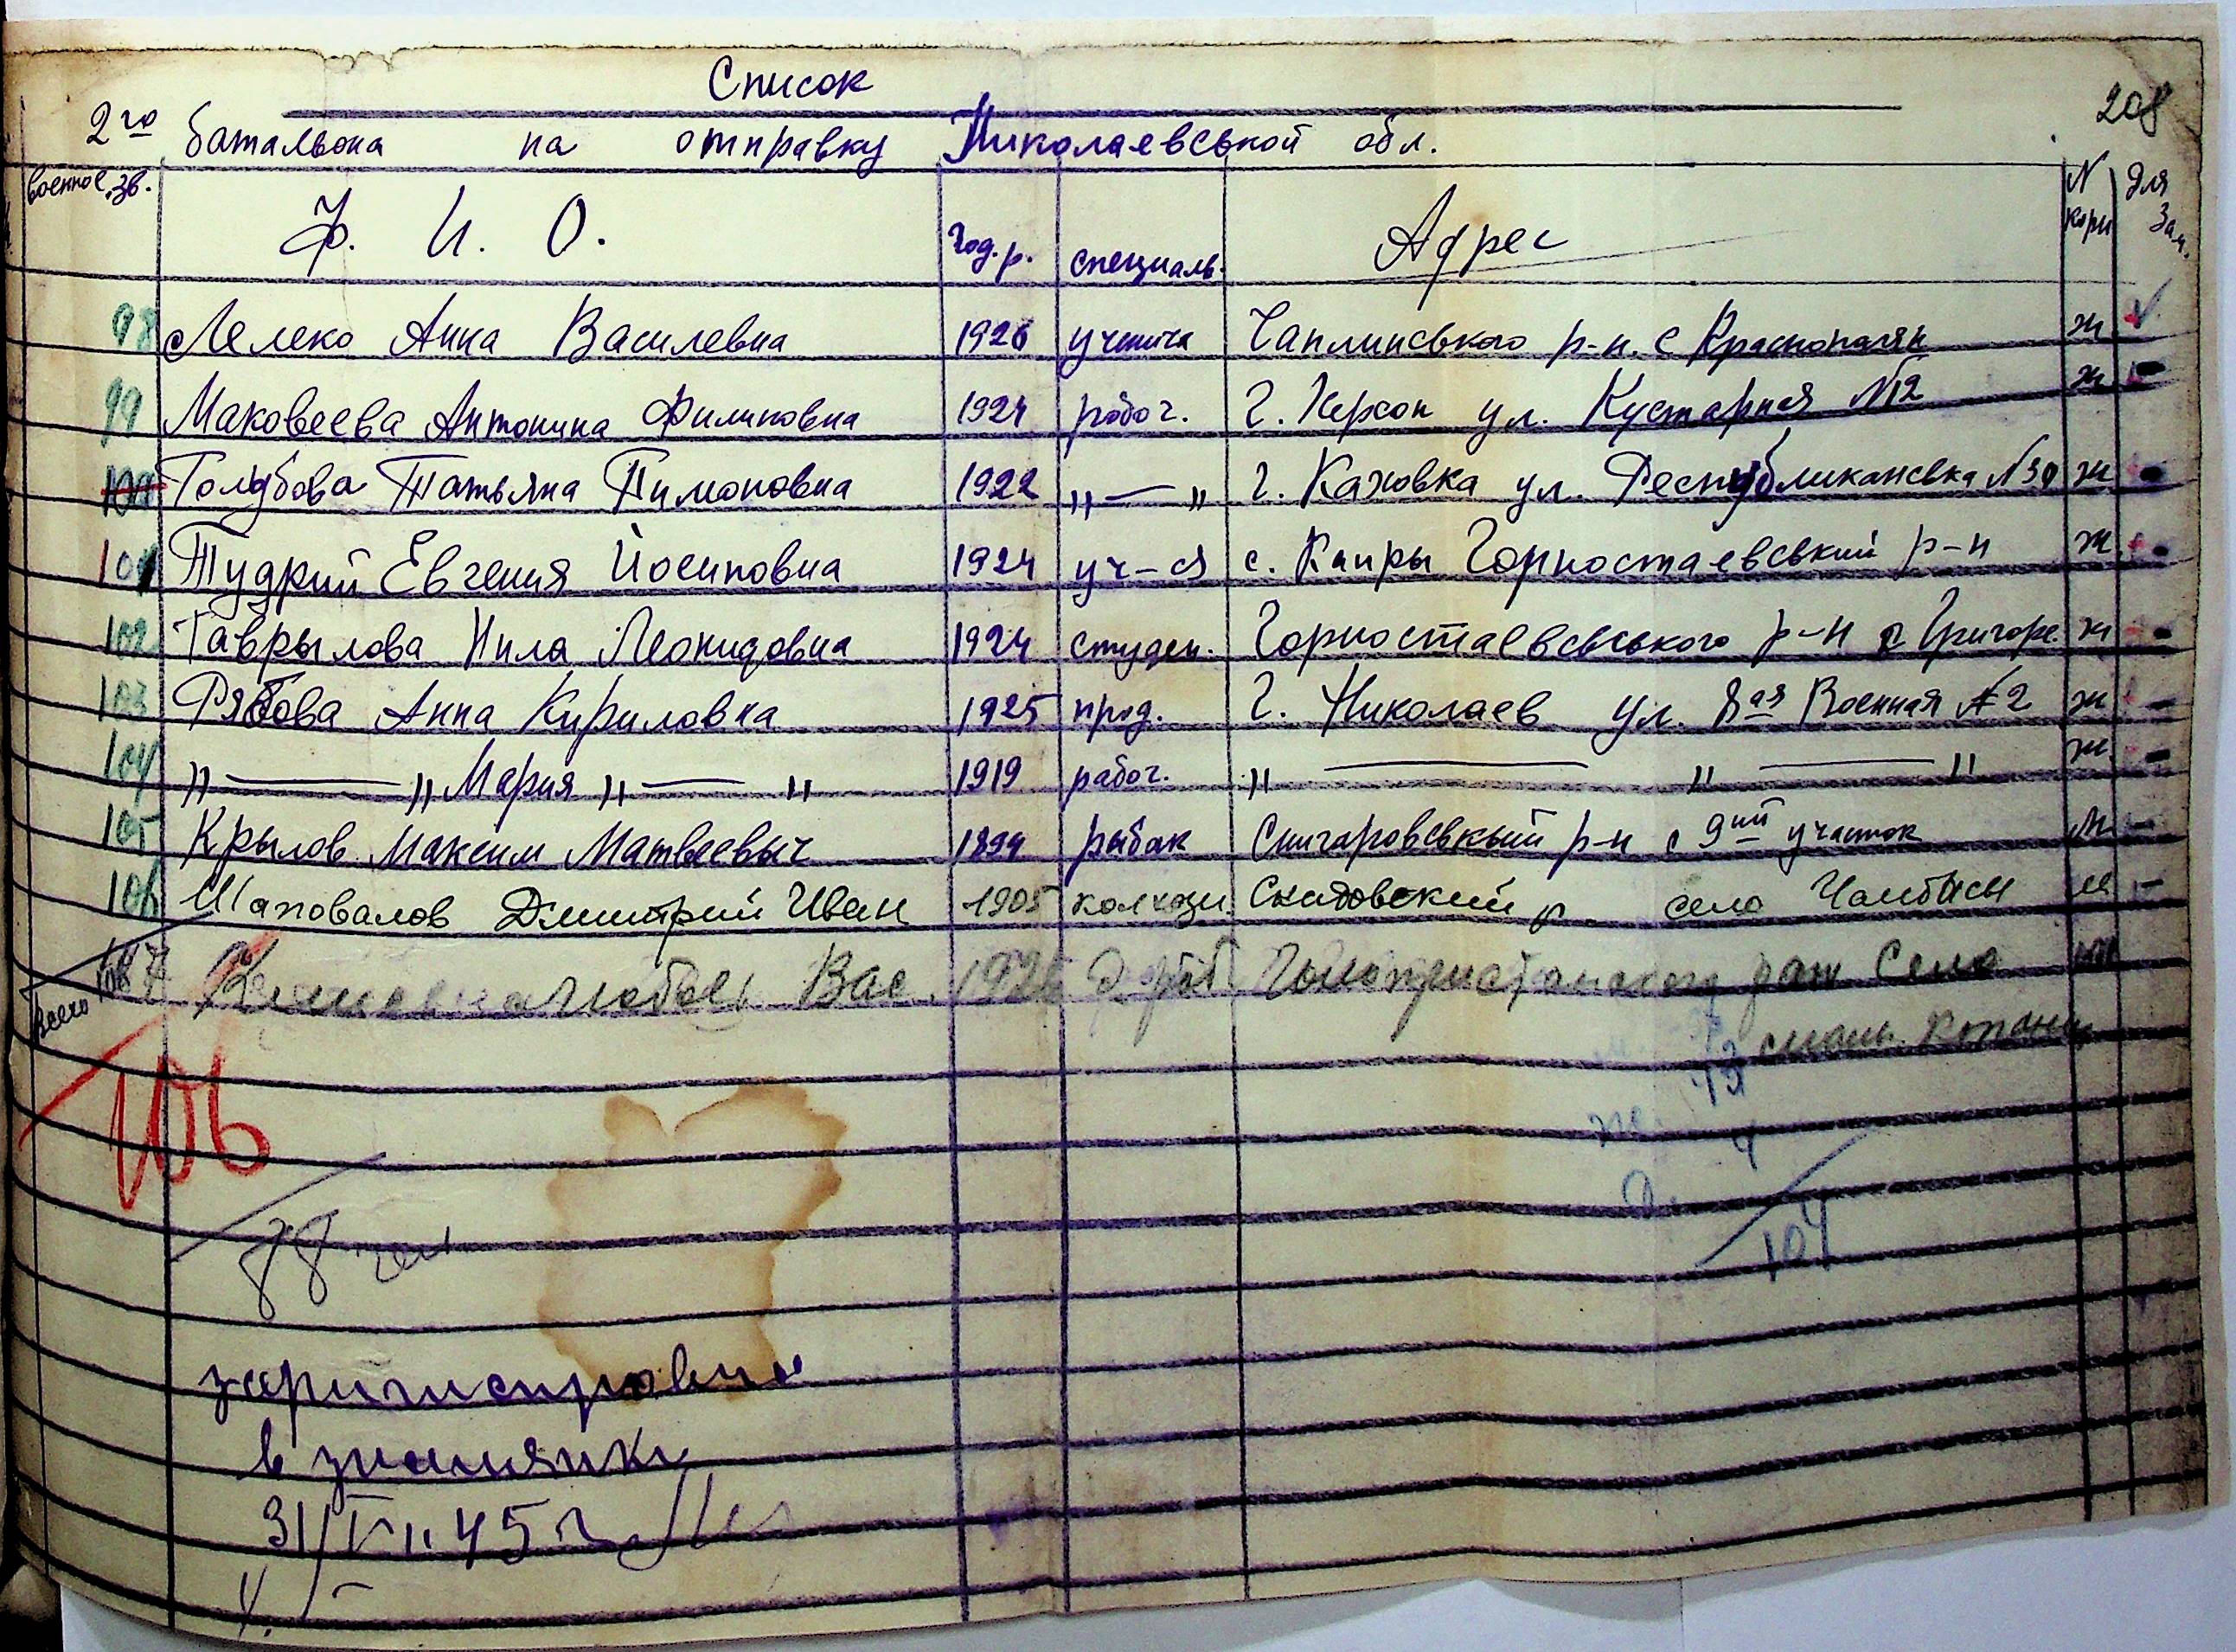 Список
208
2го батальона на отправку Николаевськой обл.
военное зв. Ф. И. О. Год.р. специаль. Адрес N Для Зам.
98 Лелеко Анна Василевна 1926 Чаплинського р-н. с ж
99 Маковеева Антонина Филиповна 1924 робоч. г. Херсон ул. Кустарная №12 ж
100 Голубова Татьяна Тимоновна 1922 „ — „ г. Каховка ул. Республиканська ж
101 Тудрий Евгения Йосиповна 1924 уч-ся с. Каиры Горностаевський р-н ж
102 Гаврылова Нила Леонидовна 1924 студен. Горностаевсьського р-н с Григоре ж
103 Рябова Анна Кириловна 1925 прод. г. Николаев ул. 8ая Военная № 2 ж
104 „ — „ Мария „ — „ 1919 рабоч. „ — „ — „ ж
105 Крылов Максим Матвеевыч 1894 рыбак р-н с 9ий участок м
106 Шаповалов Дмитрий Иван 1905 колхозн. Скадовский р село Чалбасы м
107 Вас. 1926 Село
Всего Копани
106 13
ж. 4
78 чел 104
в знамянки
31/ 45 г